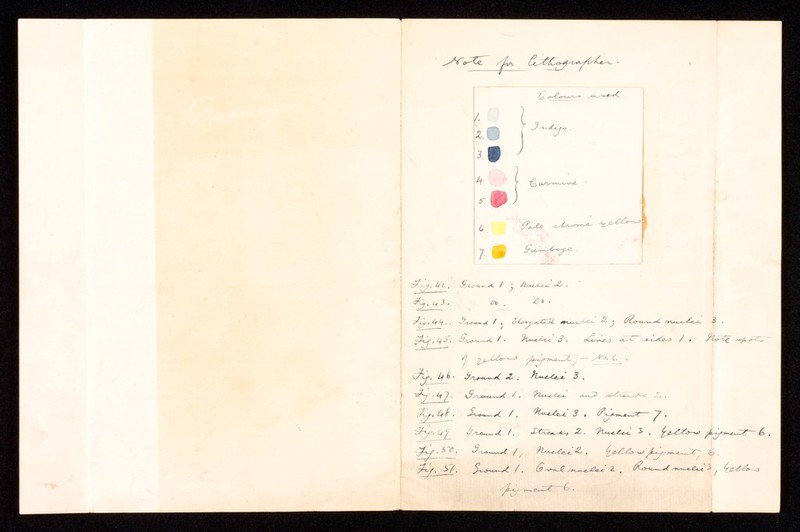 Note for Lithographer.
Colours used
1.
2. Indigo.
3.
4. Carmine.
5.
6. Pale chrome yellow
7. Gamboge.
Fig. 42. Ground 1; Nuclei 2.
Fig. 43. do. do.
Fig. 44. Ground 1; Elongated nuclei 2; Round nuclei 3.
Fig. 45. Ground 1. Nuclei 3. Lines at sides 1. Note spots
of yellow pigment,— No. 6.
Fig. 46. Ground 2. Nuclei 3.
Fig. 47. Ground 1. Nuclei and streaks 2.
Fig. 48. Ground 1. Nuclei 3. Pigment 7.
Fig. 49 Ground 1. Streaks 2. Nuclei 3. Yellow pigment 6.
Fig. 50. Ground 1, Nuclei 2. Yellow pigment, 6.
Fig. 51. Ground 1. Oval nuclei 2, Round nuclei 3, Yellow
pigment 6.